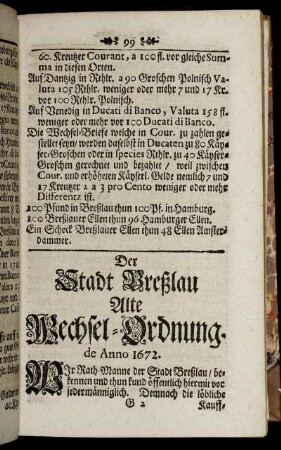 99
60. Kreutzer Courant, a 100 fl. vor gleiche Sum-
ma in diesen Orten.
Auf Dantzig in Rthlr. a 90 Groschen Polnisch Va-
luta 105 Rthlr. weniger oder mehr 7 und 17 Kr.
vor 100 Rthlr. Polnisch.
Auf Venedig in Ducati di Banco, Valuta 158 fl.
weniger oder mehr vor 100 Ducati di Banco.
Die Wechsel-Briefe welche in Cour. zu zahlen ge-
stellet seyn/ werden daselbst in Ducaten zu 80 Käy-
ser-Groschen oder in Species Rthlr. zu 40 Käyser-
Groschen gerechnet und bezahlet / weil zwischen
Cour. und erhöheten Käyserl. Gelde nemlich 7 und
17 Kreutzer 2 a 3 pro Cento weniger oder mehr
Differentz ist.
100 Pfund in Breßlau thun 100 Pf. in Hamburg.
100 Breßlauer Ellen thun 96 Hamburger Ellen.
Ein Schock Breßlauer Ellen thun 48 Ellen Amster-
dammer.
Der
Stadt Breßlau
Alte
Wechsel-Ordnung.
de Anno 1672.
WIr Rath-Manne der Stadt Breßlau / be-
kennen und thun kund öffentlich hiermit vor
jedermänniglich. Demnach die löbliche
G 2
Kauff-